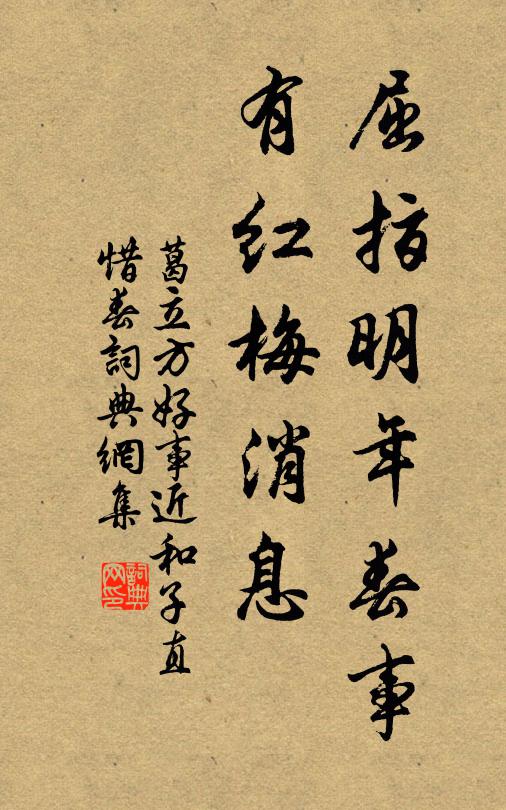 屈指明年春事
有红梅消息
葛立方好事近和子直
惜春詞典網集
詞典
网印